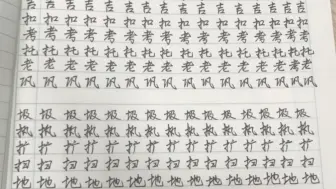 吉吉吉吉吉吉吉吉吉吉吉吉吉吉吉
扣扣扣扣扣扣扣扣扣扣扣扣扣扣扣
考考考考考考考考考考考考考考考
托托托托托托托托托托托托托托托
老老老老老老老老老老老老老老老
巩巩巩巩巩巩巩巩巩巩巩巩巩巩巩
圾圾圾圾圾圾圾圾圾圾圾圾圾圾
执执执执执执执执执执执执执执
扩扩扩扩扩扩扩扩扩扩扩扩扩扩
扫扫扫扫扫扫扫扫扫扫扫扫扫扫
地地地地地地地地地地地地地地